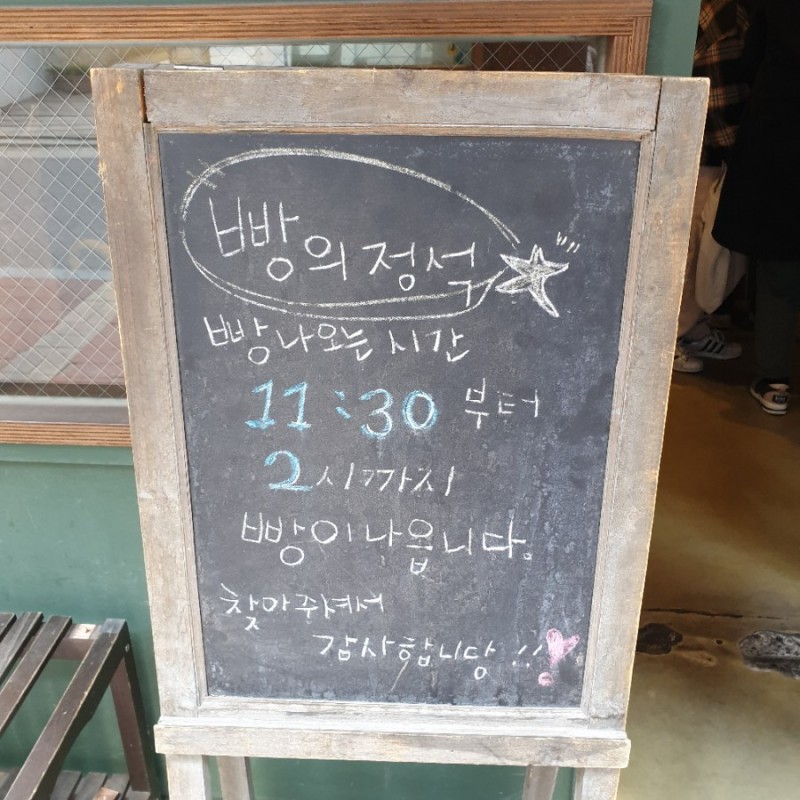 빵의 정석
빵 나오는 시간
11:30 부터
2시까지
빵이 나옵니다.
찾아주셔서
감사합니당!!